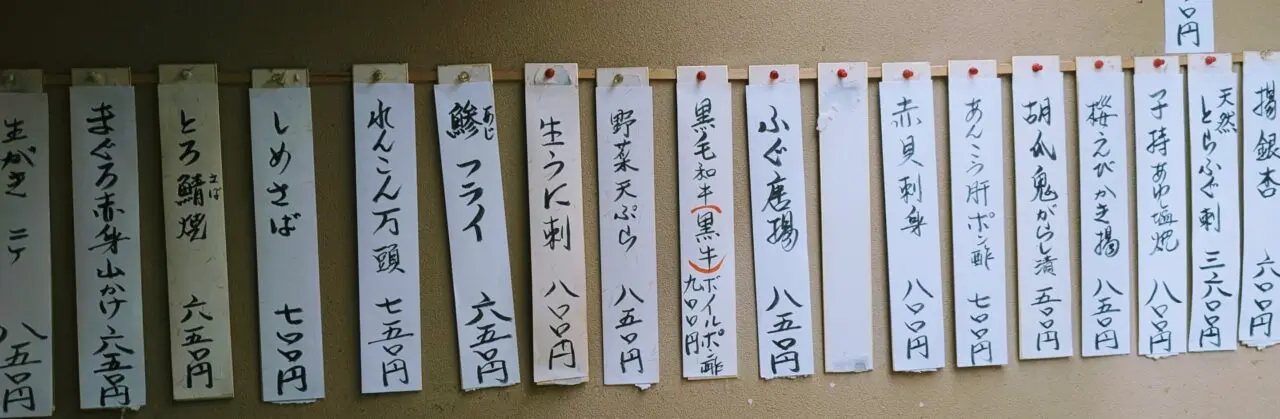 〇円
揚銀杏 六〇〇円
天然とらふぐ刺 三六〇〇円
子持あゆ塩焼 八〇〇円
桜えびかき揚 八五〇円
胡瓜鬼がらし漬 五〇〇円
あんこう肝ポン酢 七〇〇円
赤貝刺身 八〇〇円
ふぐ唐揚 八五〇円
黒毛和牛(黒牛)ボイルポン酢
九〇〇円
野菜天ぷら 八五〇円
生うに刺 八〇〇円
あじ
鯵フライ 六五〇円
れんこん万頭 七五〇円
しめさば 七〇〇円
さば
とろ鯖焼 六五〇円
まぐろ赤身山かけ 六五〇円
生がき 二ケ 八五〇円